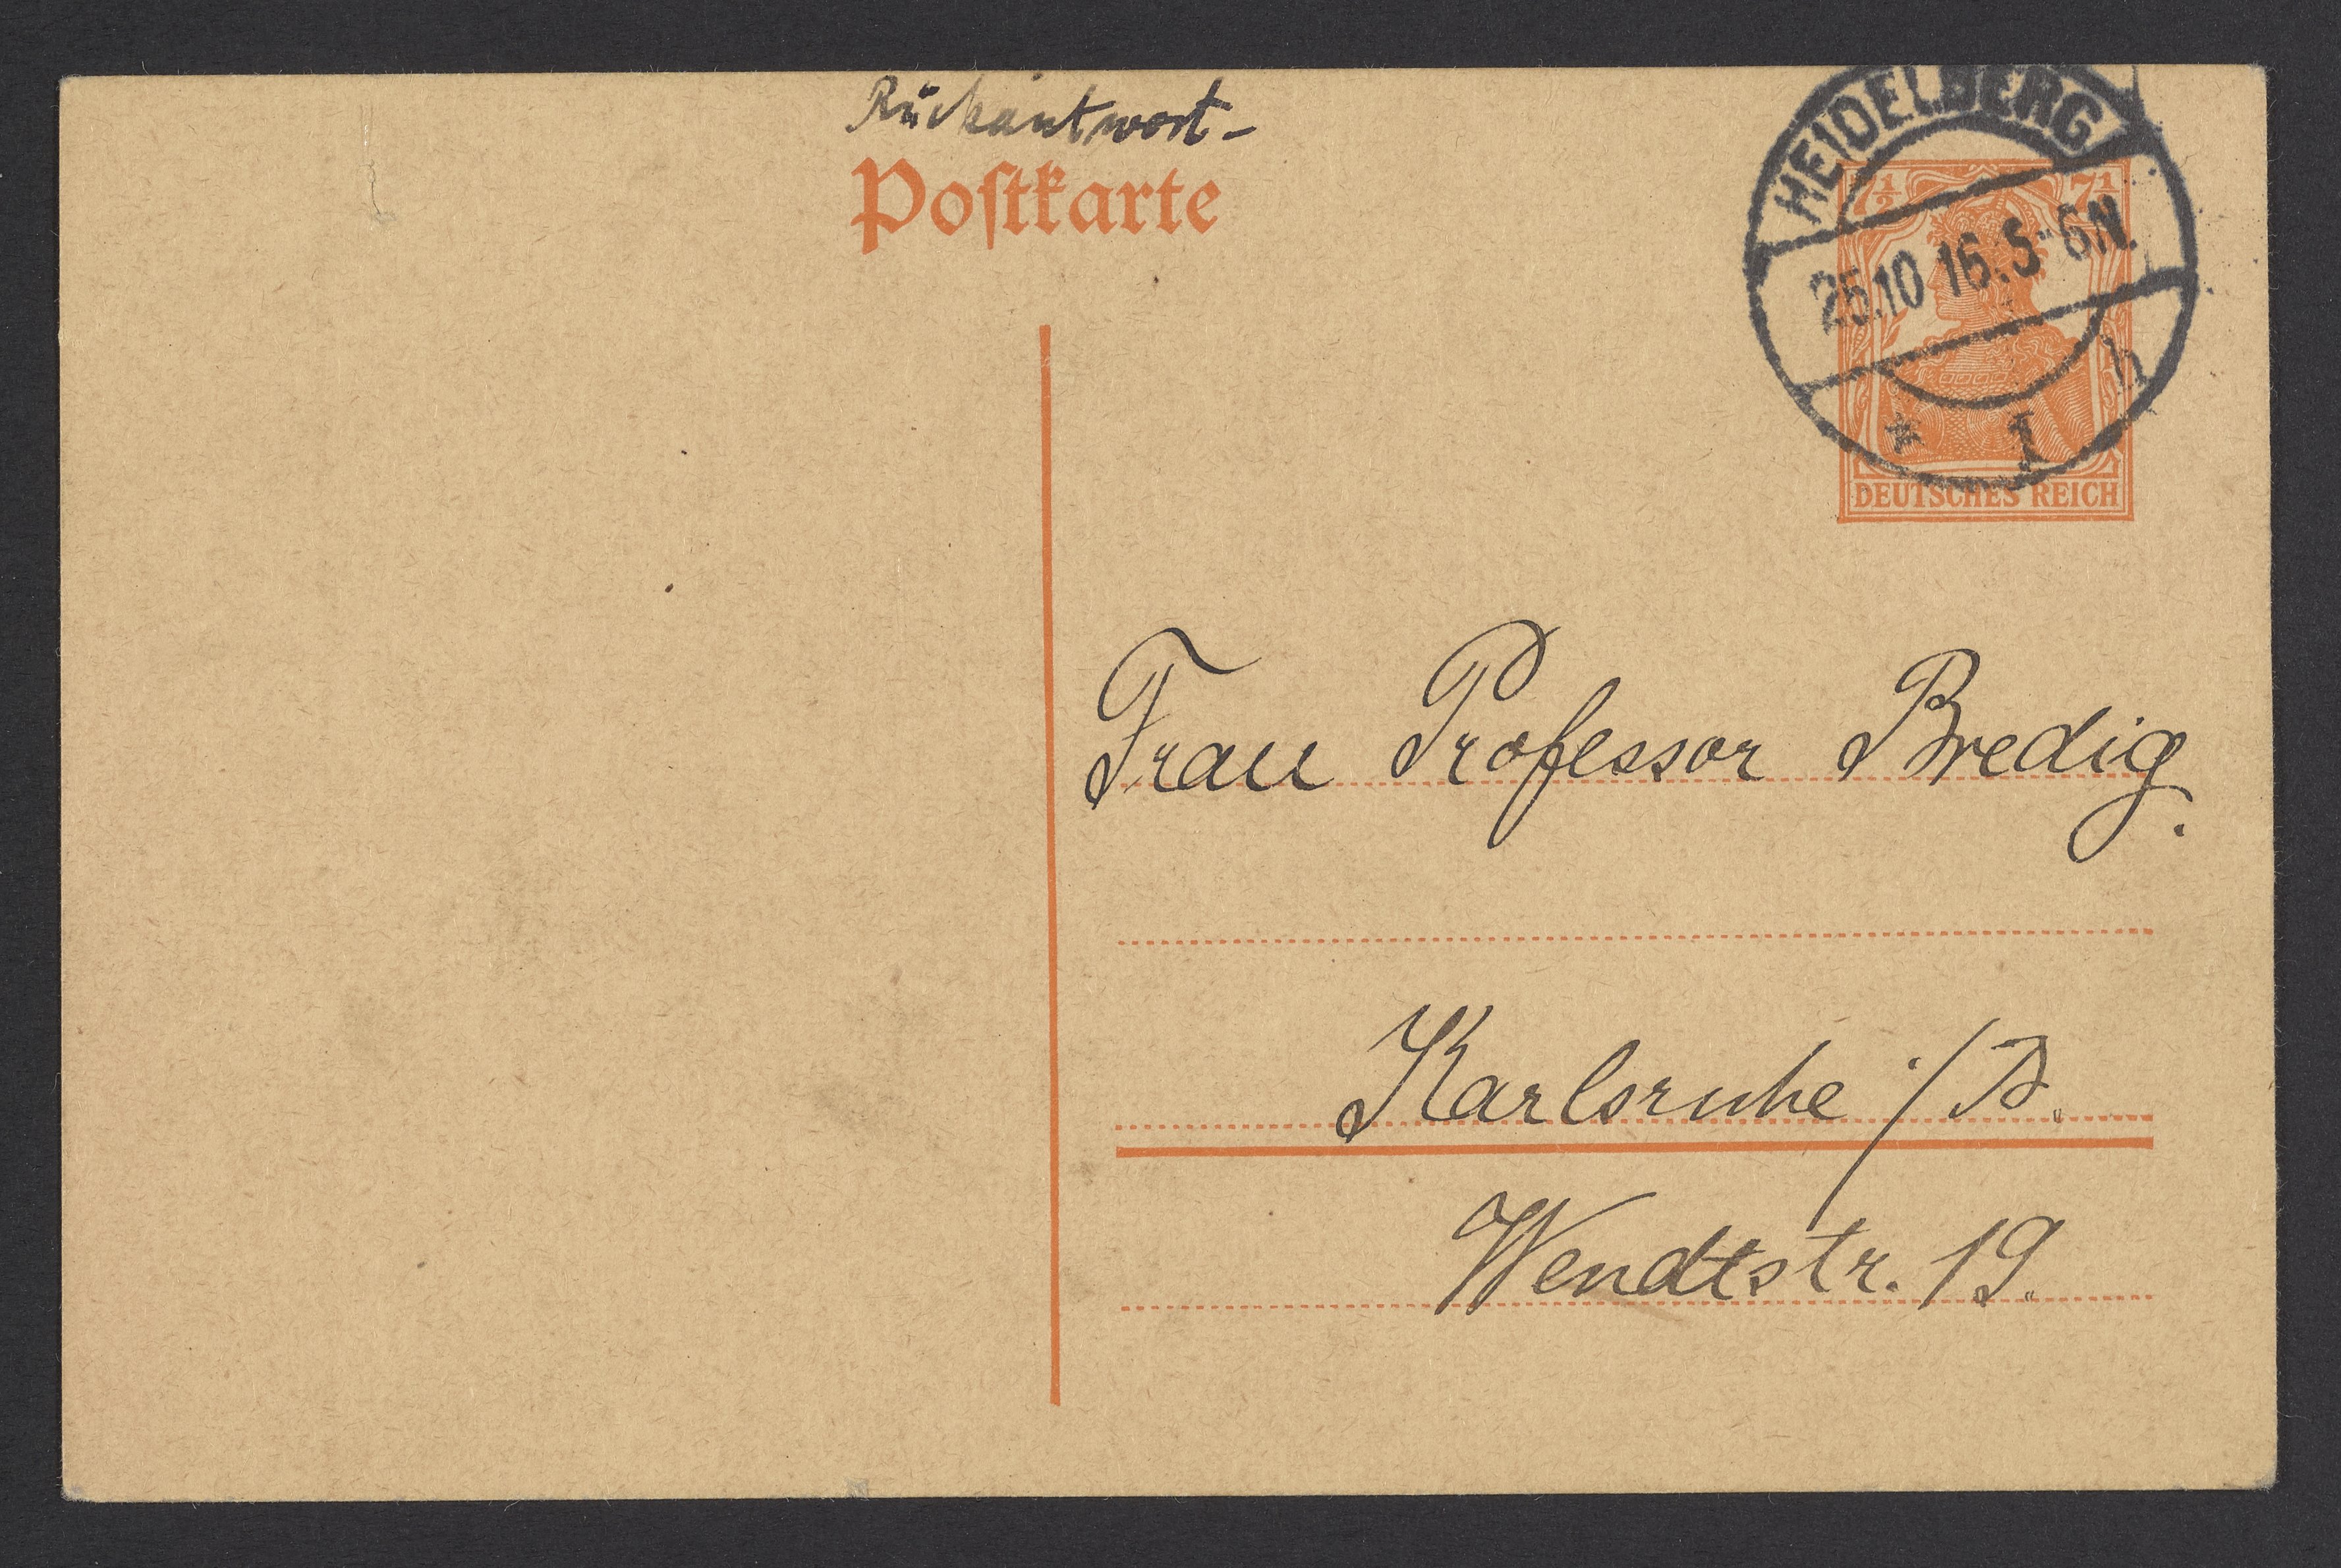 Rückantwort-
Postkarte
HEIDELBERG
7½ 7½
25.10 16.5-6N.
* 1 h
DEUTSCHES REICH
Frau Professor Bredig.
Karlsruhe i/B.
Wendtstr. 19.